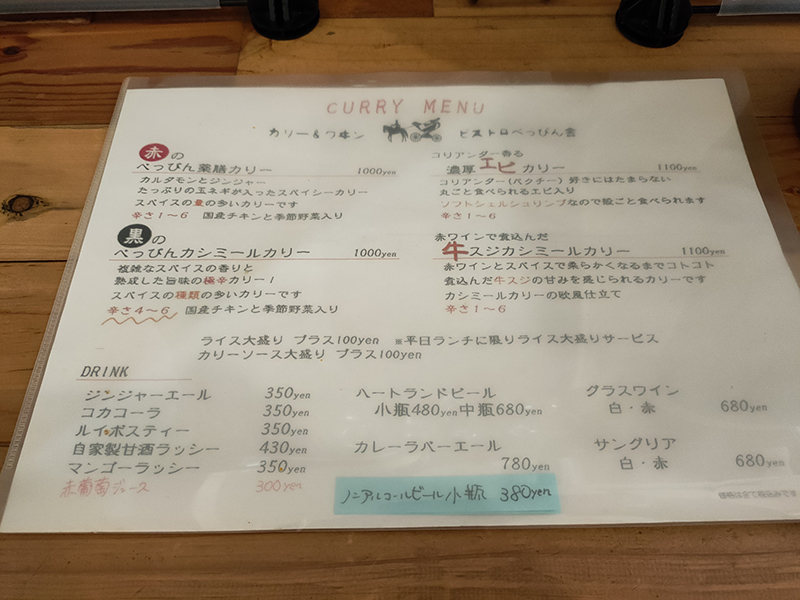 CURRY MENU
カリー&ワヰン ビストロべっぴん舎
赤の
べっぴん薬膳カリー 1000yen
カルダモンとジンジャー
たっぷりの玉ネギが入ったスパイシーカリー
スパイスの量の多いカリーです
辛さ1～6 国産チキンと季節野菜入り
黒の
べっぴんカシミールカリー 1000yen
複雑なスパイスの香りと
熟成した旨味の極辛カリー!
スパイスの種類の多いカリーです
辛さ4～6 国産チキンと季節野菜入り
コリアンダー香る
濃厚エビカリー 1100yen
コリアンダー(パクチー)好きにはたまらない
丸ごと食べられるエビ入り
ソフトシェルシュリンプなので殻ごと食べられます
辛さ1～6
赤ワインで煮込んだ
牛スジカシミールカリー 1100yen
赤ワインとスパイスで柔らかくなるまでコトコト
煮込んだ牛スジの甘みを感じられるカリーです
カシミールカリーの欧風仕立て
辛さ1～6
ライス大盛り プラス100yen ※平日ランチに限りライス大盛りサービス
カリーソース大盛り プラス100yen
DRINK
ジンジャーエール 350yen
コカコーラ 350yen
ルイボスティー 350yen
自家製甘酒ラッシー 430yen
マンゴーラッシー 350yen
赤葡萄ジュース 300yen
ハートランドビール
小瓶480yen中瓶680yen
カレーラバーエール
780yen
ノンアルコールビール小瓶 380yen
グラスワイン
白・赤 680yen
サングリア
白・赤 680yen
価格は全て税込みです